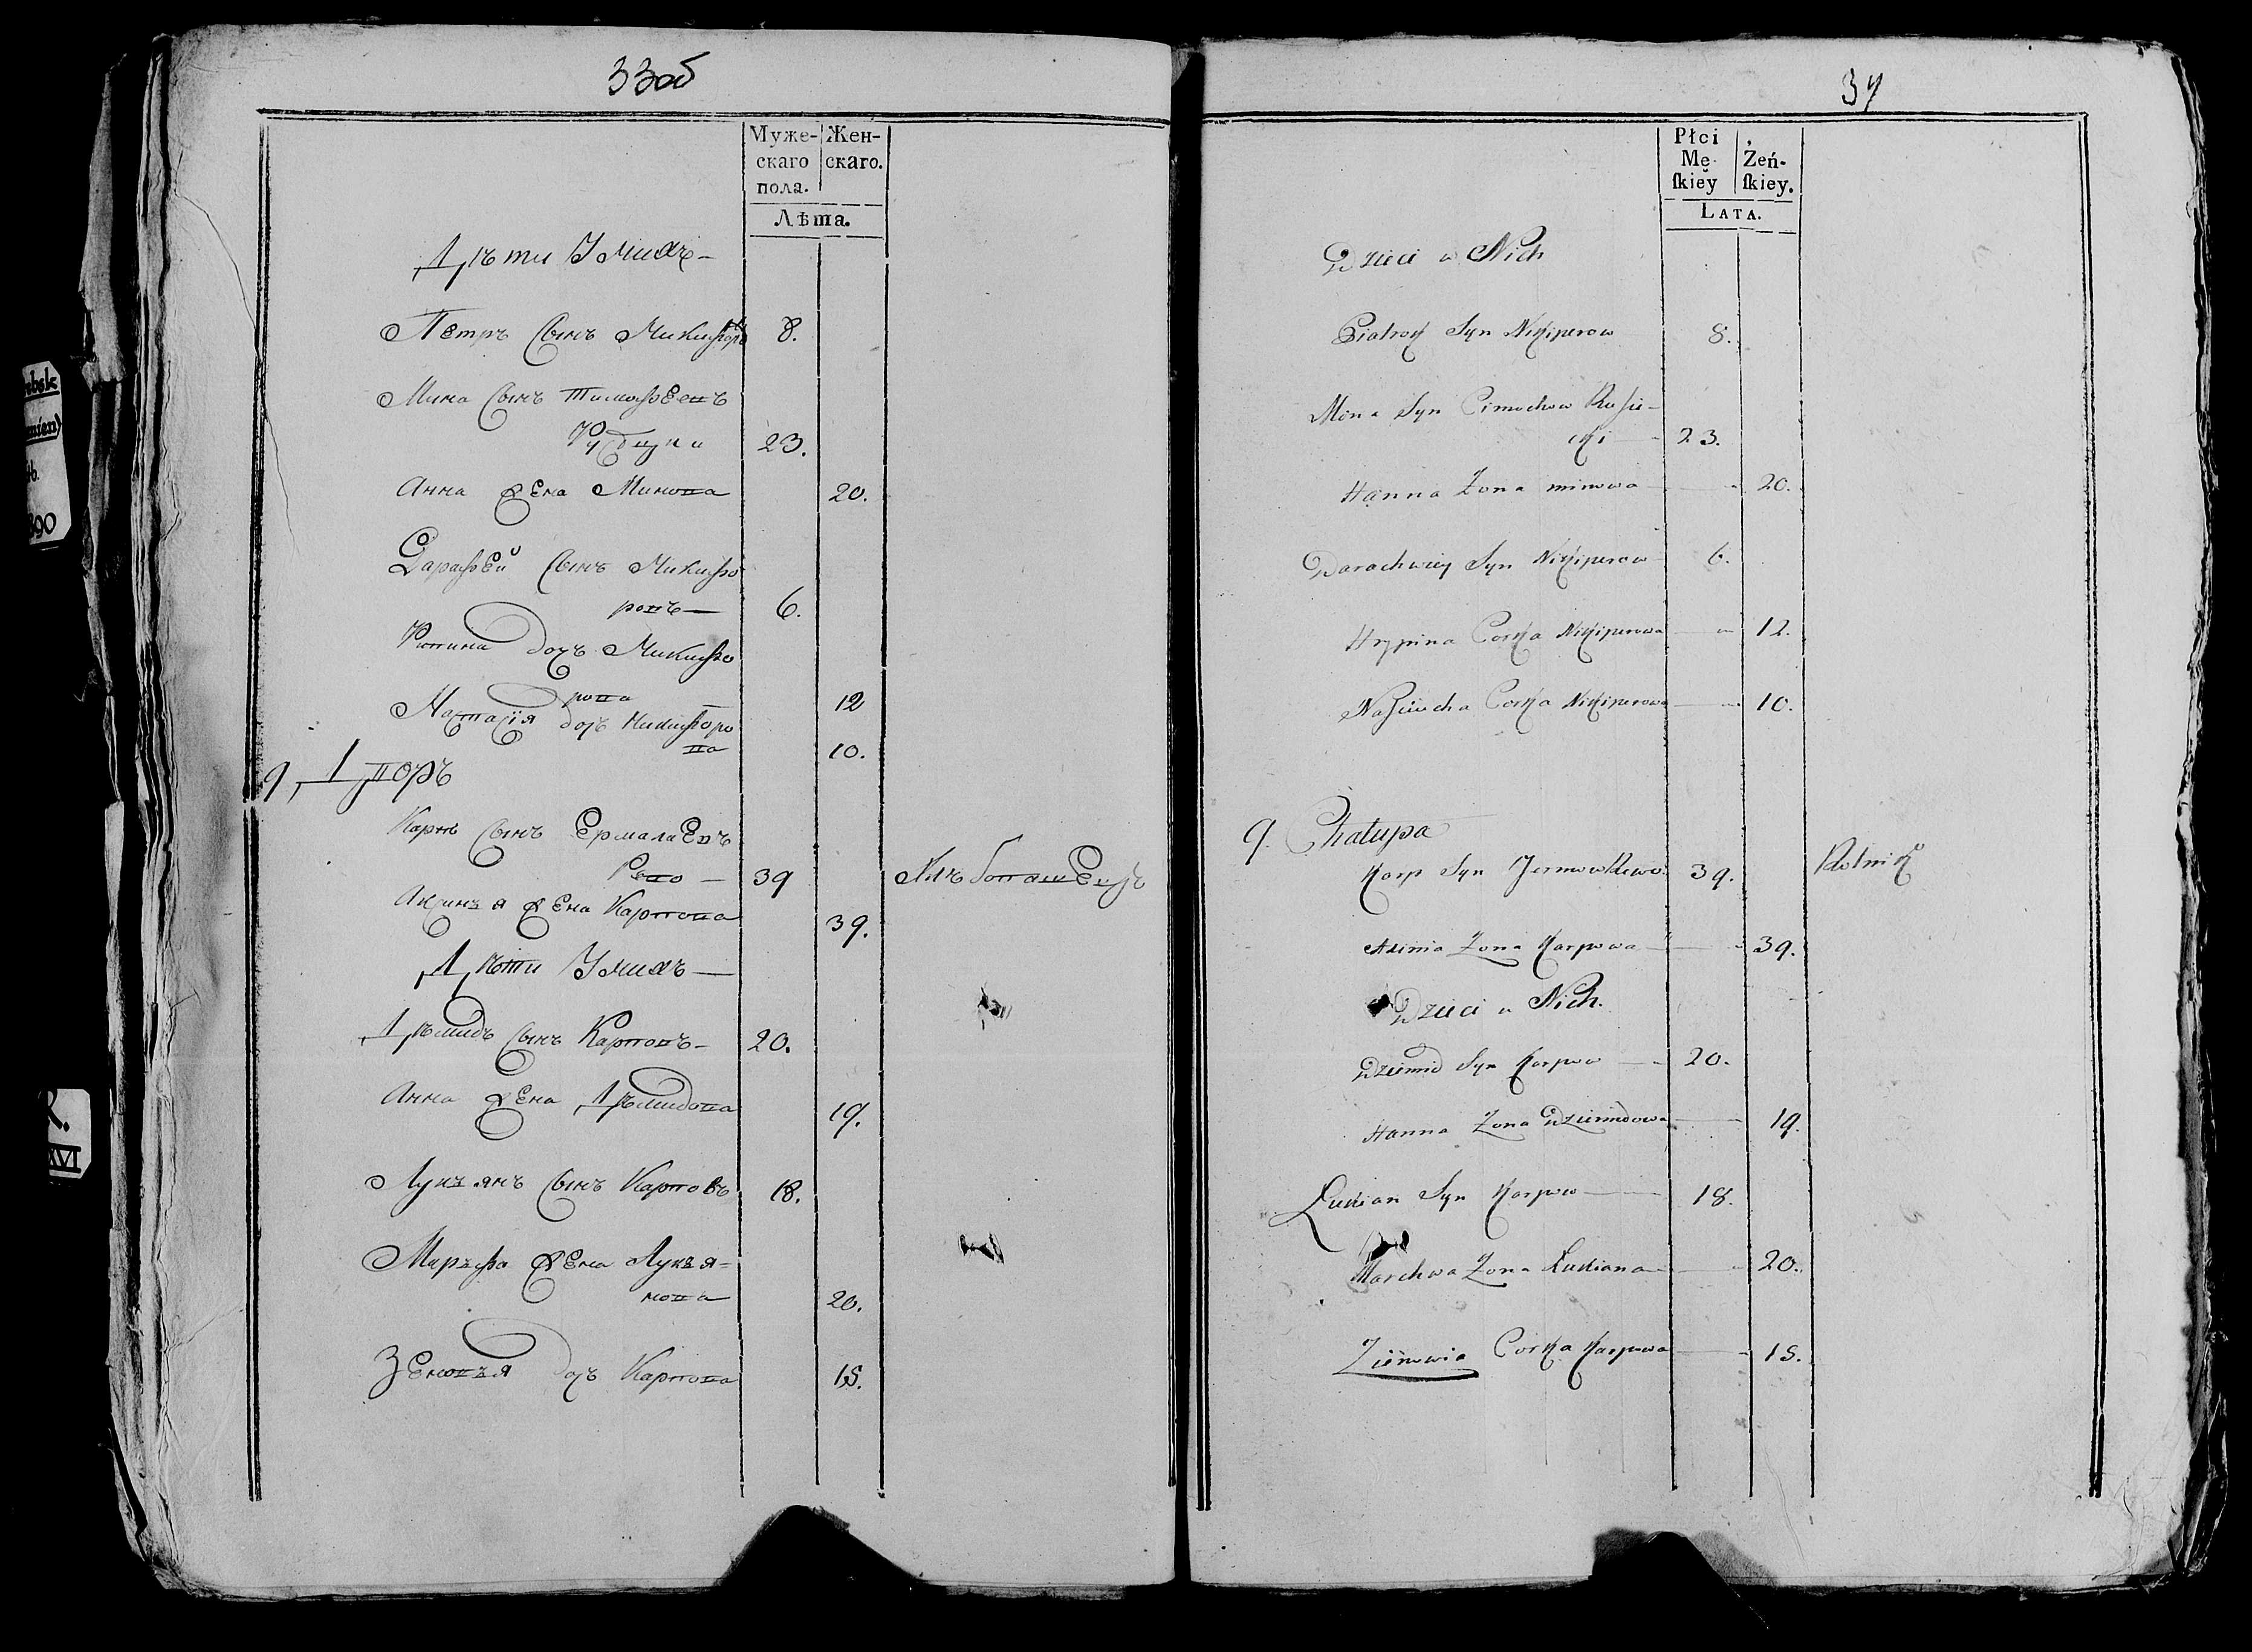 33об
Муже- Жен-
скаго скаго.
пола.
Лѣта.
Дѣти У михъ
Петръ Сынъ Микифоръ 8.
Мина Сынъ Тимофѣевъ
23.
Анна жена Минова 20.
Дарафей Сынъ Микифо
ровъ 6.
дочъ Микифо
рова 12
Настасія дочъ Микифоро
ва 10.
9 Дворъ
Карпъ Сынъ Ермалаевъ
Рево 39 Хлѣбопашецъ
Аксинья жена Карпова 39.
Дѣти У михъ
Дѣмидъ Сынъ Карповъ 20.
Анна жена Дѣмидова 19.
Лукьянъ Сынъ Карповъ 18.
Марьфа жена Лукья-
нова 20.
Зеновья дочъ Карпова 15.
34
Płci Żeń-
Mę- skiey.
skiey
LATA.
Dzieci u Nich
Piatrok Syn Nikiperow 8.
Mina Syn Cimochow Rusie-
cki 23.
Hanna Żona minowa 20.
Darachwiey Syn Nikiperow 6.
Hrypina Corka Nikiperowa 12.
Nasciucha Corka Nikiperowa 10.
9. Chałupa
Karp Syn Jermow Rewo 39. Rolnik
Axinia Żona Karpowa 39.
Dzieci u Nich.
Dziemid Syn Karpow 20.
Hanna Żona Dziemidowa 19.
Łukian Syn Karpow 18.
Marchwa Żona Łukiana 20.
Zienowia Corka Karpowa 15.